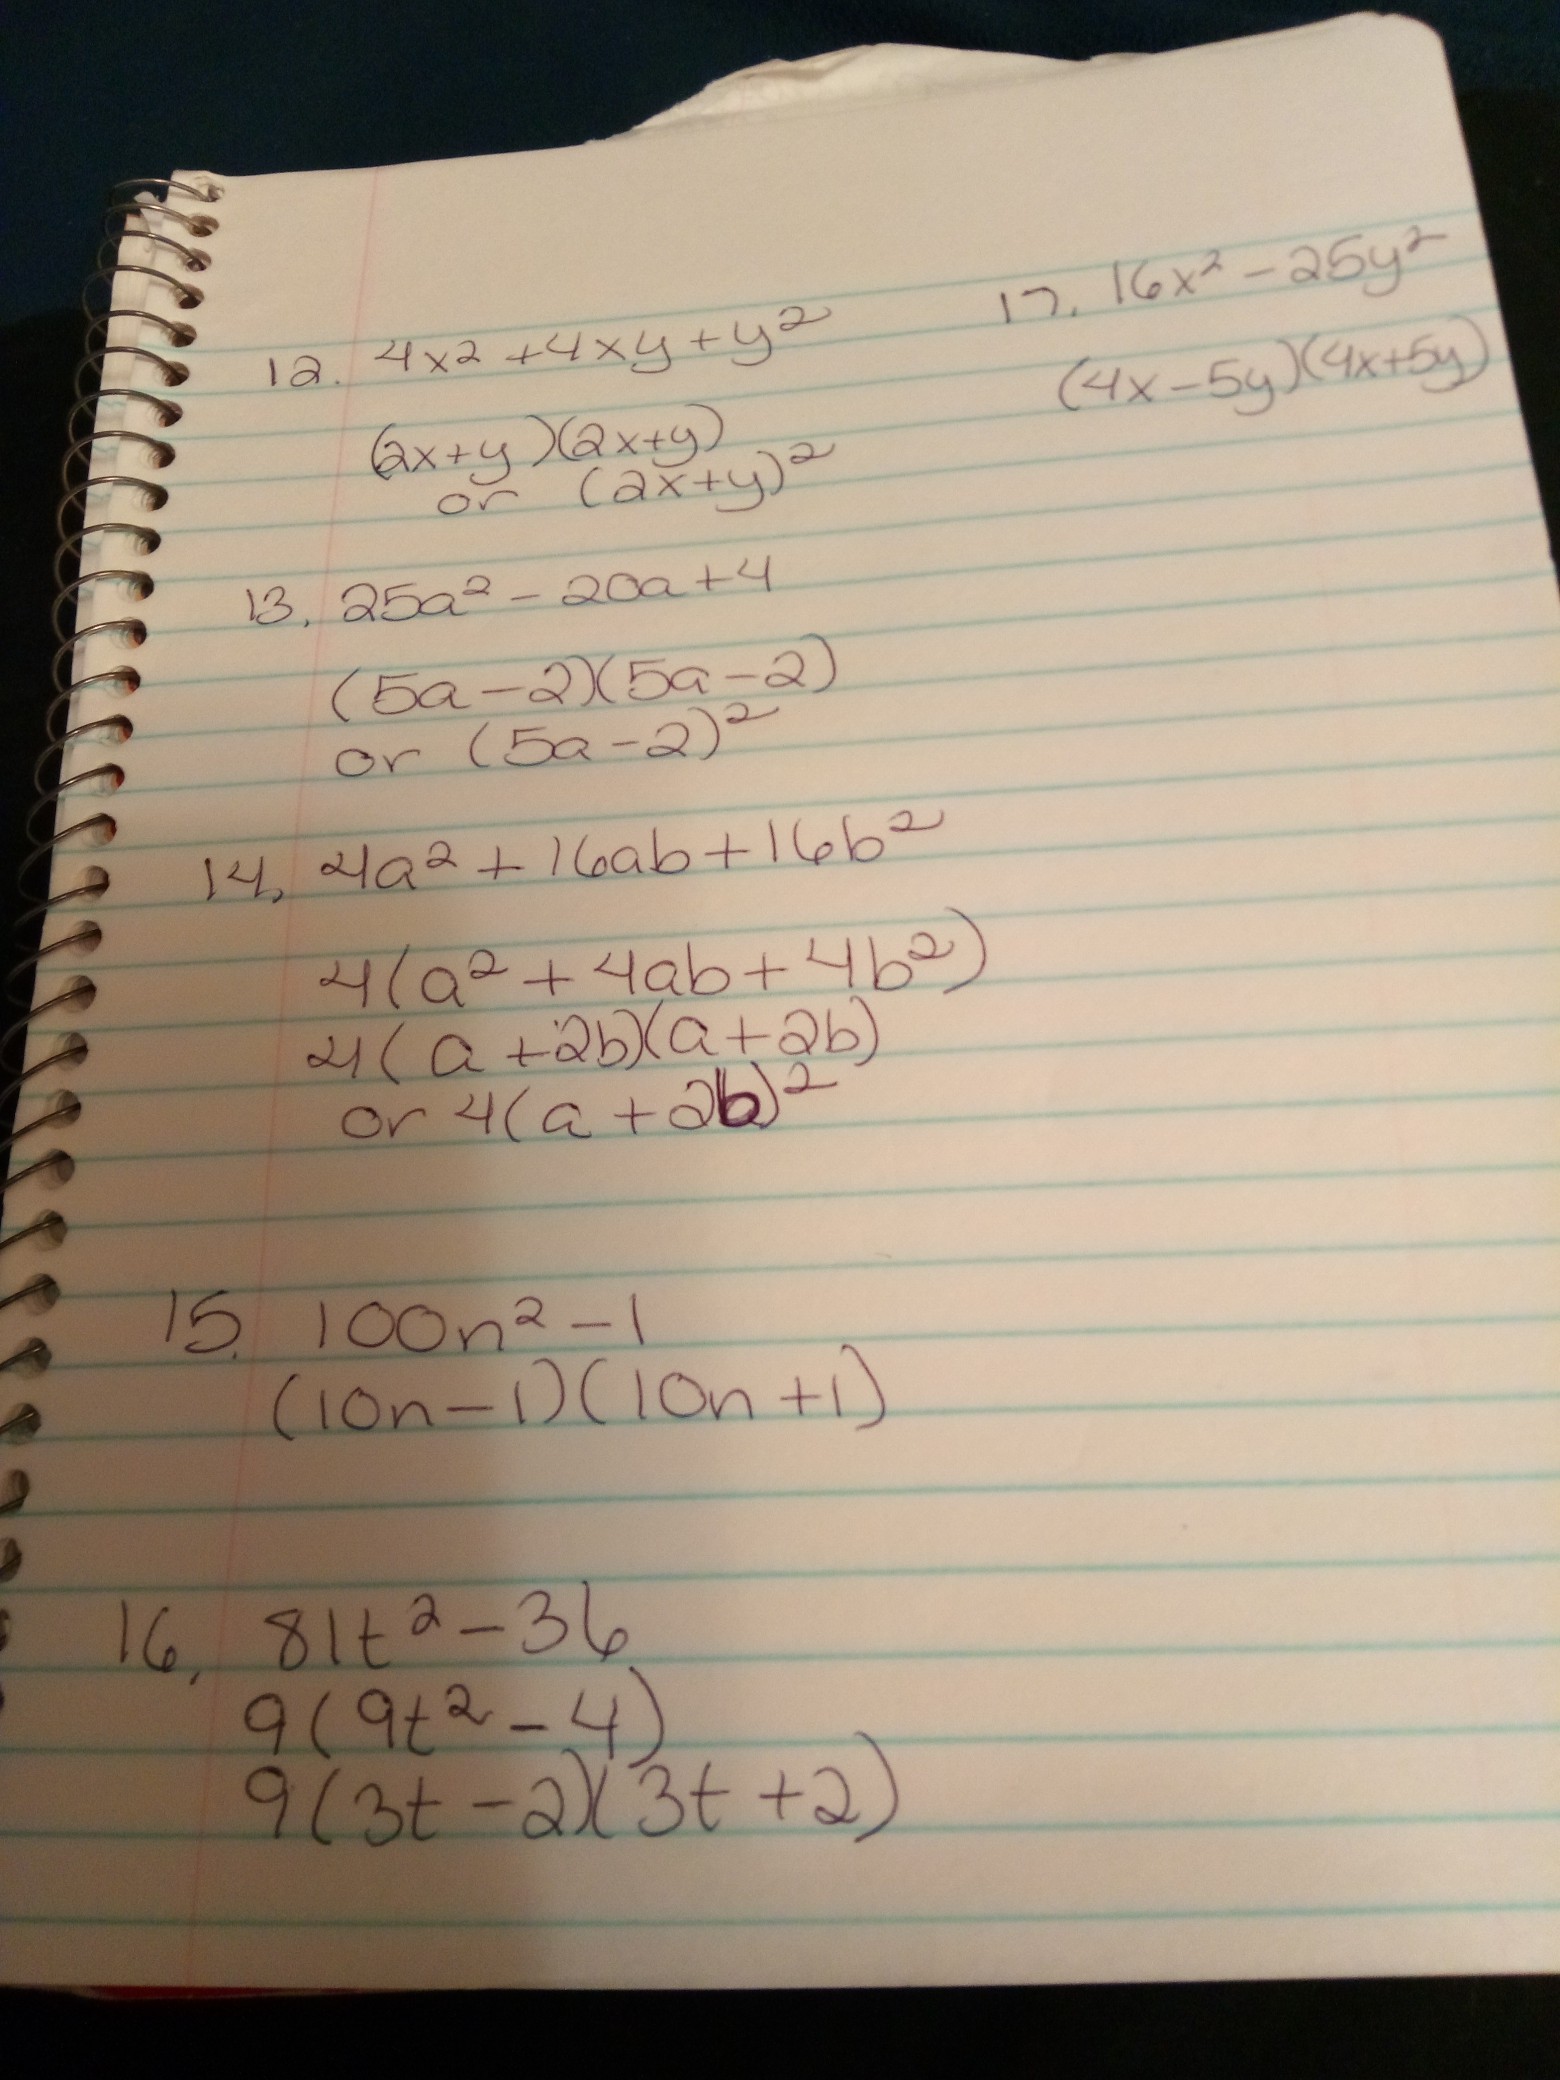 12. 4x2 +4xy+y²
(2x+y)(2x+y)
or (2x+y)²
13. 25a² - 20a+4
(5a-2)(5a-2)
or (5a-2)²
14. 4a² + 16ab+16b²
4(a² + 4ab+4b²)
4(a +2b)(a+2b)
or 4(a +2b)²
15. 100n² - 1
(10n-1)(10n+1)
16. 81t² - 36
9(9t² - 4)
9(3t -2)(3t +2)
17. 16x² - 25y²
(4x-5y)(4x+5y)